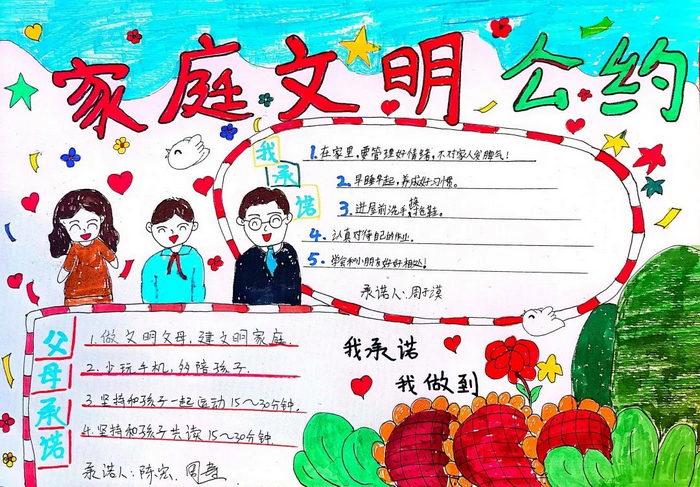 家庭文明公约
我承诺
1.在家里,要管理好情绪,不对家人发脾气!
2.早睡早起,养成好习惯。
3.进屋前洗手,换拖鞋。
4.认真对待自己的作业。
5.学会和小朋友好好相处。
承诺人:周子漠
父母承诺
1.做文明父母,建文明家庭
2.少玩手机,多陪孩子.
3.坚持和孩子一起运动15~30分钟.
4.坚持和孩子共读15~30分钟
承诺人:陈宏.周
我承诺
我做到